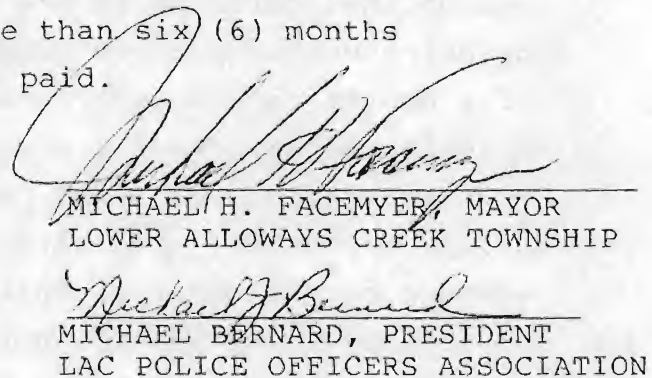 e than six (6) months
paid.
Michael H Facemyer
MICHAEL H. FACEMYER, MAYOR
LOWER ALLOWAYS CREEK TOWNSHIP
Michael J Bernard
MICHAEL BERNARD, PRESIDENT
LAC POLICE OFFICERS ASSOCIATION